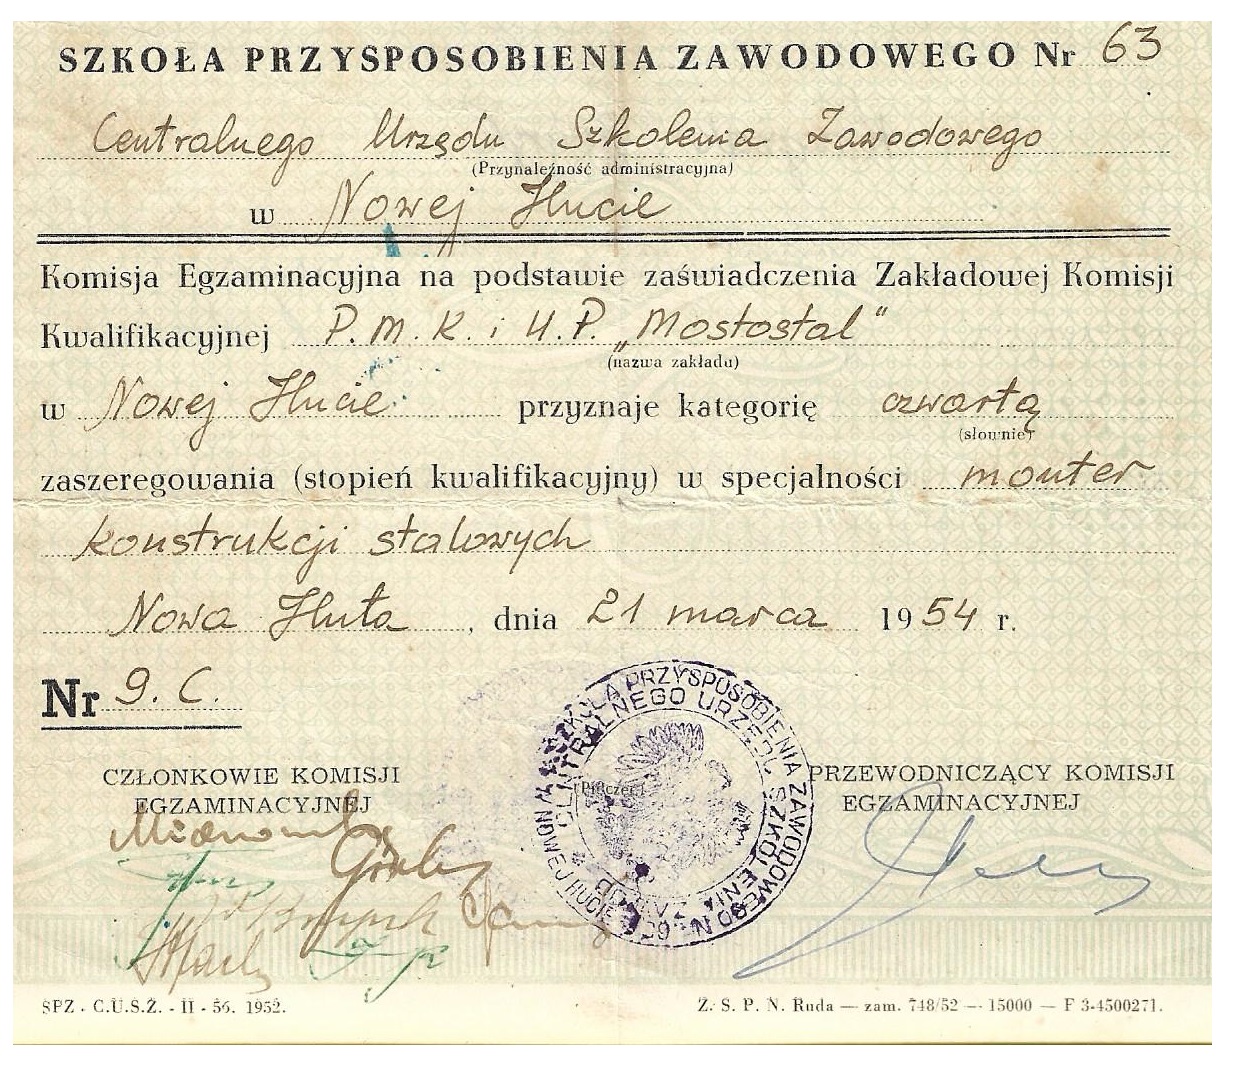 SZKOŁA PRZYSPOSOBIENIA ZAWODOWEGO Nr 63
Centralnego Urzędu Szkolenia Zawodowego
(Przynależność administracyjna)
w Nowej Hucie
Komisja Egzaminacyjna na podstawie zaświadczenia Zakładowej Komisji
Kwalifikacyjnej P.M.K. i U.P. „Mostostal"
(nazwa zakładu)
w Nowej Hucie przyznaje kategorię czwartą
(słownie)
zaszeregowania (stopień kwalifikacyjny) w specjalności monter
konstrukcji stalowych
Nowa Huta, dnia 21 marca 1954 r.
Nr 9. C.
SZKOŁA PRZYSPOSOBIENIA ZAWODOWEGO
CENTRALNEGO URZĘDU SZKOLENIA ZAWOD
W NOWEJ HUCIE
CZŁONKOWIE KOMISJI
EGZAMINACYJNEJ
PRZEWODNICZĄCY KOMISJI
EGZAMINACYJNEJ
SPZ - C.U.S.Z. - II - 56. 1952.
Z. S. P. N. Ruda — zam. 748/52 — 15000 — F 3-4500271.